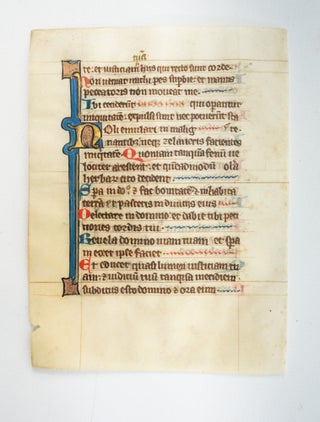 tuā
re· et iusticiam hiis qui recto sunt corde·
Non veniat michi pes supbie· et manus
peccatoris non moveat me.
Ibi ceciderūt qui operantur
iniquitatem· expulsi sunt nec potuerūt sta
Noli emulari in malig re.
nantibꝫ neqꝫ zelaveris facientes
iniqtatem· Quoniam tanquā fenū ve
lociter arescent· et quemadmodū ola
herbaꝝ cito decident·
Spa in dño & fac bonitatē· & inhabita
terrā & pasceris in diviciis eius
Delectare in domino· et dabit tibi peti
tiones cordis tui·
Revela domino viam tuam· et spa
in eo et ipse faciet
Et educet quasi lumen iusticiam tu
am· & iudiciū tuū tanquā meridiem
subditus esto domino & ora eum